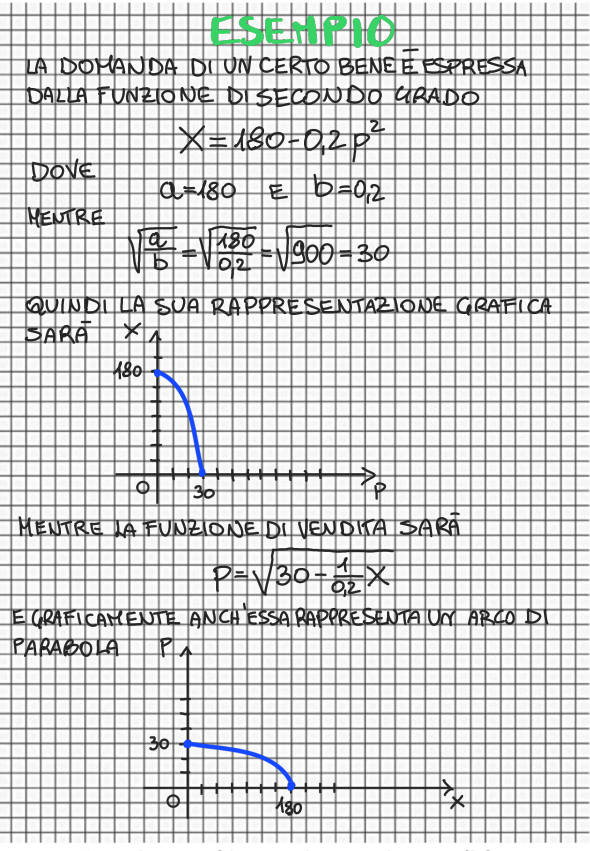 ESEMPIO
LA DOMANDA DI UN CERTO BENE È ESPRESSA
DALLA FUNZIONE DI SECONDO GRADO
X=180-0,2p²
DOVE
a=180 E b=0,2
MENTRE
√(a/b) = √(180/0,2) = √900 = 30
QUINDI LA SUA RAPPRESENTAZIONE GRAFICA
SARÀ
X
180
0
30
P
MENTRE LA FUNZIONE DI VENDITA SARÀ
P=√(30-1/0,2 X)
E GRAFICAMENTE ANCH'ESSA RAPPRESENTA UN ARCO DI
PARABOLA
P
30
0
180
X